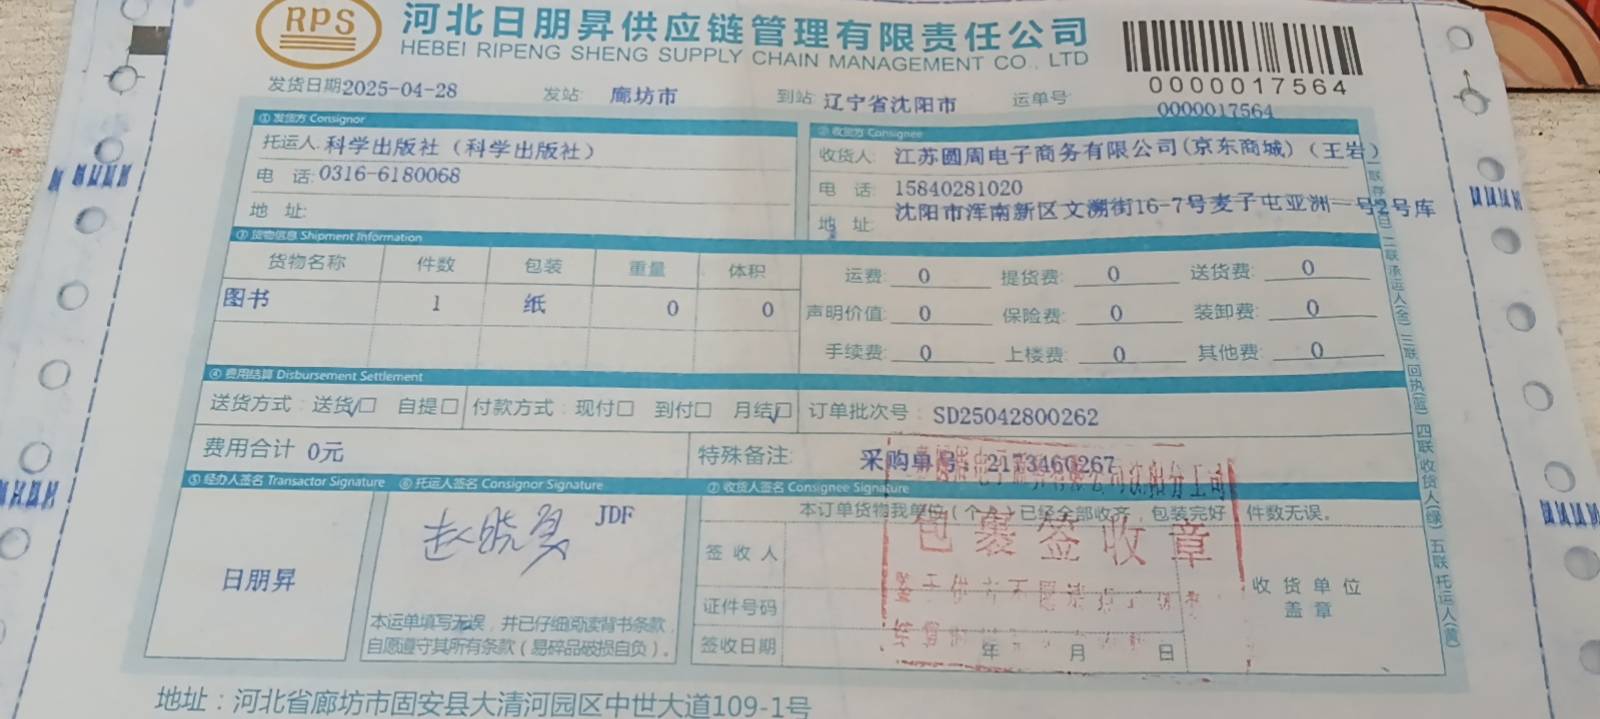 RPS
河北日朋昇供应链管理有限责任公司
HEBEI RIPENG SHENG SUPPLY CHAIN MANAGEMENT CO., LTD
0000017564
发货日期 2025-04-28 发站: 廊坊市 到站: 辽宁省沈阳市 运单号: 0000017564
① 发货方 Consignor
托运人: 科学出版社（科学出版社）
电 话: 0316-6180068
地 址:
② 收货方 Consignee
收货人: 江苏圆周电子商务有限公司(京东商城)（王岩）
电 话: 15840281020
地 址: 沈阳市浑南新区文溯街16-7号麦子屯亚洲一号2号库
③ 货物信息 Shipment Information
货物名称 件数 包装 重量 体积
图书 1 纸 0 0
运费: 0 提货费: 0 送货费: 0
声明价值: 0 保险费: 0 装卸费: 0
手续费: 0 上楼费: 0 其他费: 0
④ 费用结算 Disbursement Settlement
送货方式: 送货☑ 自提□ 付款方式: 现付□ 到付□ 月结☑ 订单批次号: SD25042800262
费用合计 0元 特殊备注: 采购单号: 2173460267
⑤ 经办人签名 Transactor Signature
日朋昇
⑥ 托运人签名 Consignor Signature
JDF
本运单填写无误，并已仔细阅读背书条款，
自愿遵守其所有条款（易碎品破损自负）。
⑦ 收货人签名 Consignee Signature
本订单货物我单位(个人)已经全部收齐，包装完好，件数无误。
签收人
证件号码
签收日期 年 月 日
收货单位
盖章
包裹签收章
二联承运人(金) 三联回执(蓝) 四联收货人(绿) 五联托运人(黄)
地址：河北省廊坊市固安县大清河园区中世大道109-1号